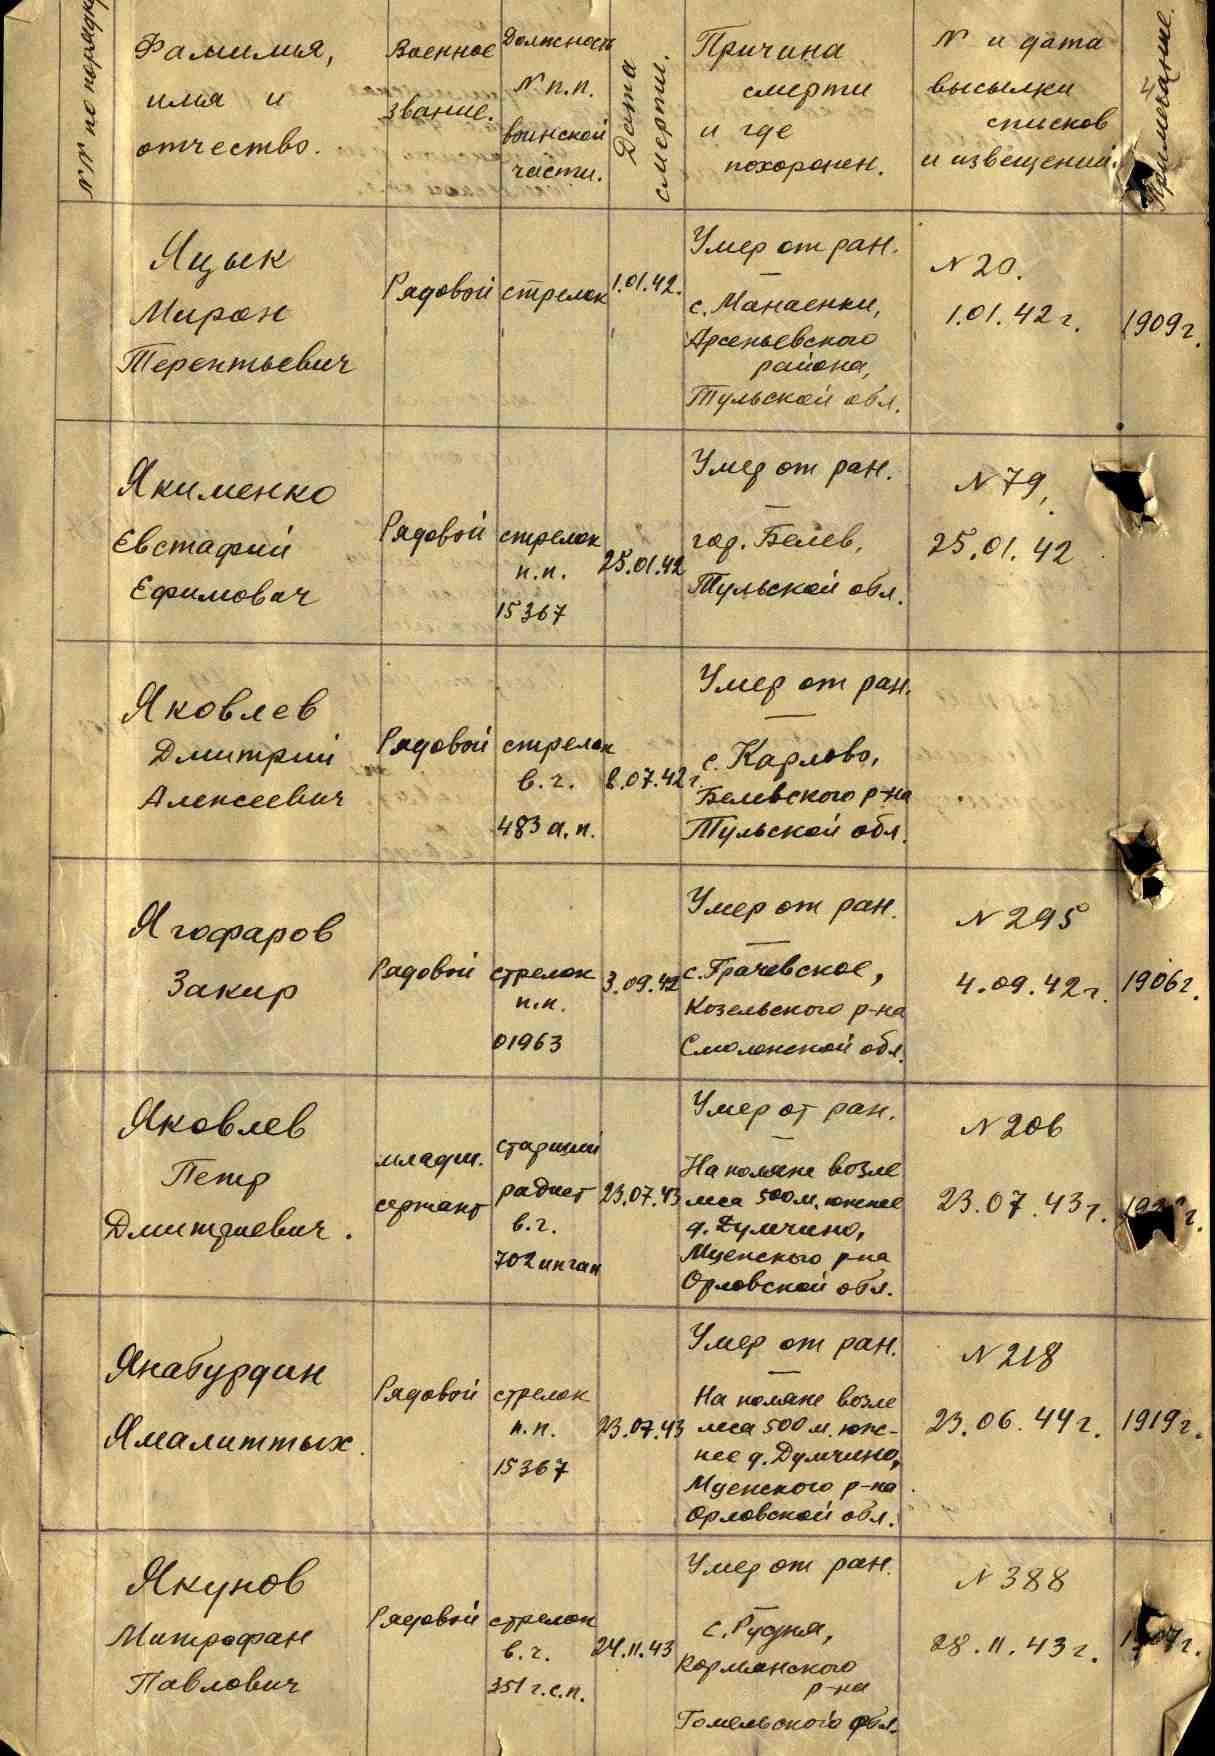 №№ по порядку
Фамилия,
имя и
отчество.
Военное
звание.
Должность
№ п.п.
воинской
части.
Дата
смерти.
Причина
смерти
и где
похоронен.
№ и дата
высылки
списков
и извещений.
Примечание.
Яцык
Мирон
Терентьевич
Рядовой
стрелок
1.01.42.
Умер от ран.
с. Манаенки,
Арсеньевского
района,
Тульской обл.
№ 20.
1.01.42 г.
1909 г.
Якименко
Евстафий
Ефимович
Рядовой
стрелок
п.п.
15367
25.01.42
Умер от ран.
гор. Белев,
Тульской обл.
№ 79,
25.01.42
Яковлев
Дмитрий
Алексеевич
Рядовой
стрелок
в.ч.
483 а.п.
8.07.42 г.
Умер от ран.
с. Карлово,
Белевского р-на
Тульской обл.
Ягофаров
Закир
Рядовой
стрелок
п.п.
01963
3.09.42
Умер от ран.
с. Грачевское,
Козельского р-на
Смоленской обл.
№ 295
4.09.42 г.
1906 г.
Яковлев
Петр
Дмитриевич.
младш.
сержант
старший
радист
в.ч.
702
23.07.43
Умер от ран.
На поляне возле
леса 500 м. южнее
д. Думчино,
Мценского р-на
Орловской обл.
№ 206
23.07.43 г.
г.
Янабурдин
Ямалиттых.
Рядовой
стрелок
п.п.
15367
23.07.43
Умер от ран.
На поляне возле
леса 500 м. юж-
нее д. Думчино,
Мценского р-на
Орловской обл.
№ 218
23.06.44 г.
1919 г.
Якунов
Митрофан
Павлович
Рядовой
стрелок
в.ч.
351 г.с.п.
24.11.43
Умер от ран.
с. Рудня,
Кормянского
р-на
Гомельского обл.
№ 388
28.11.43 г.